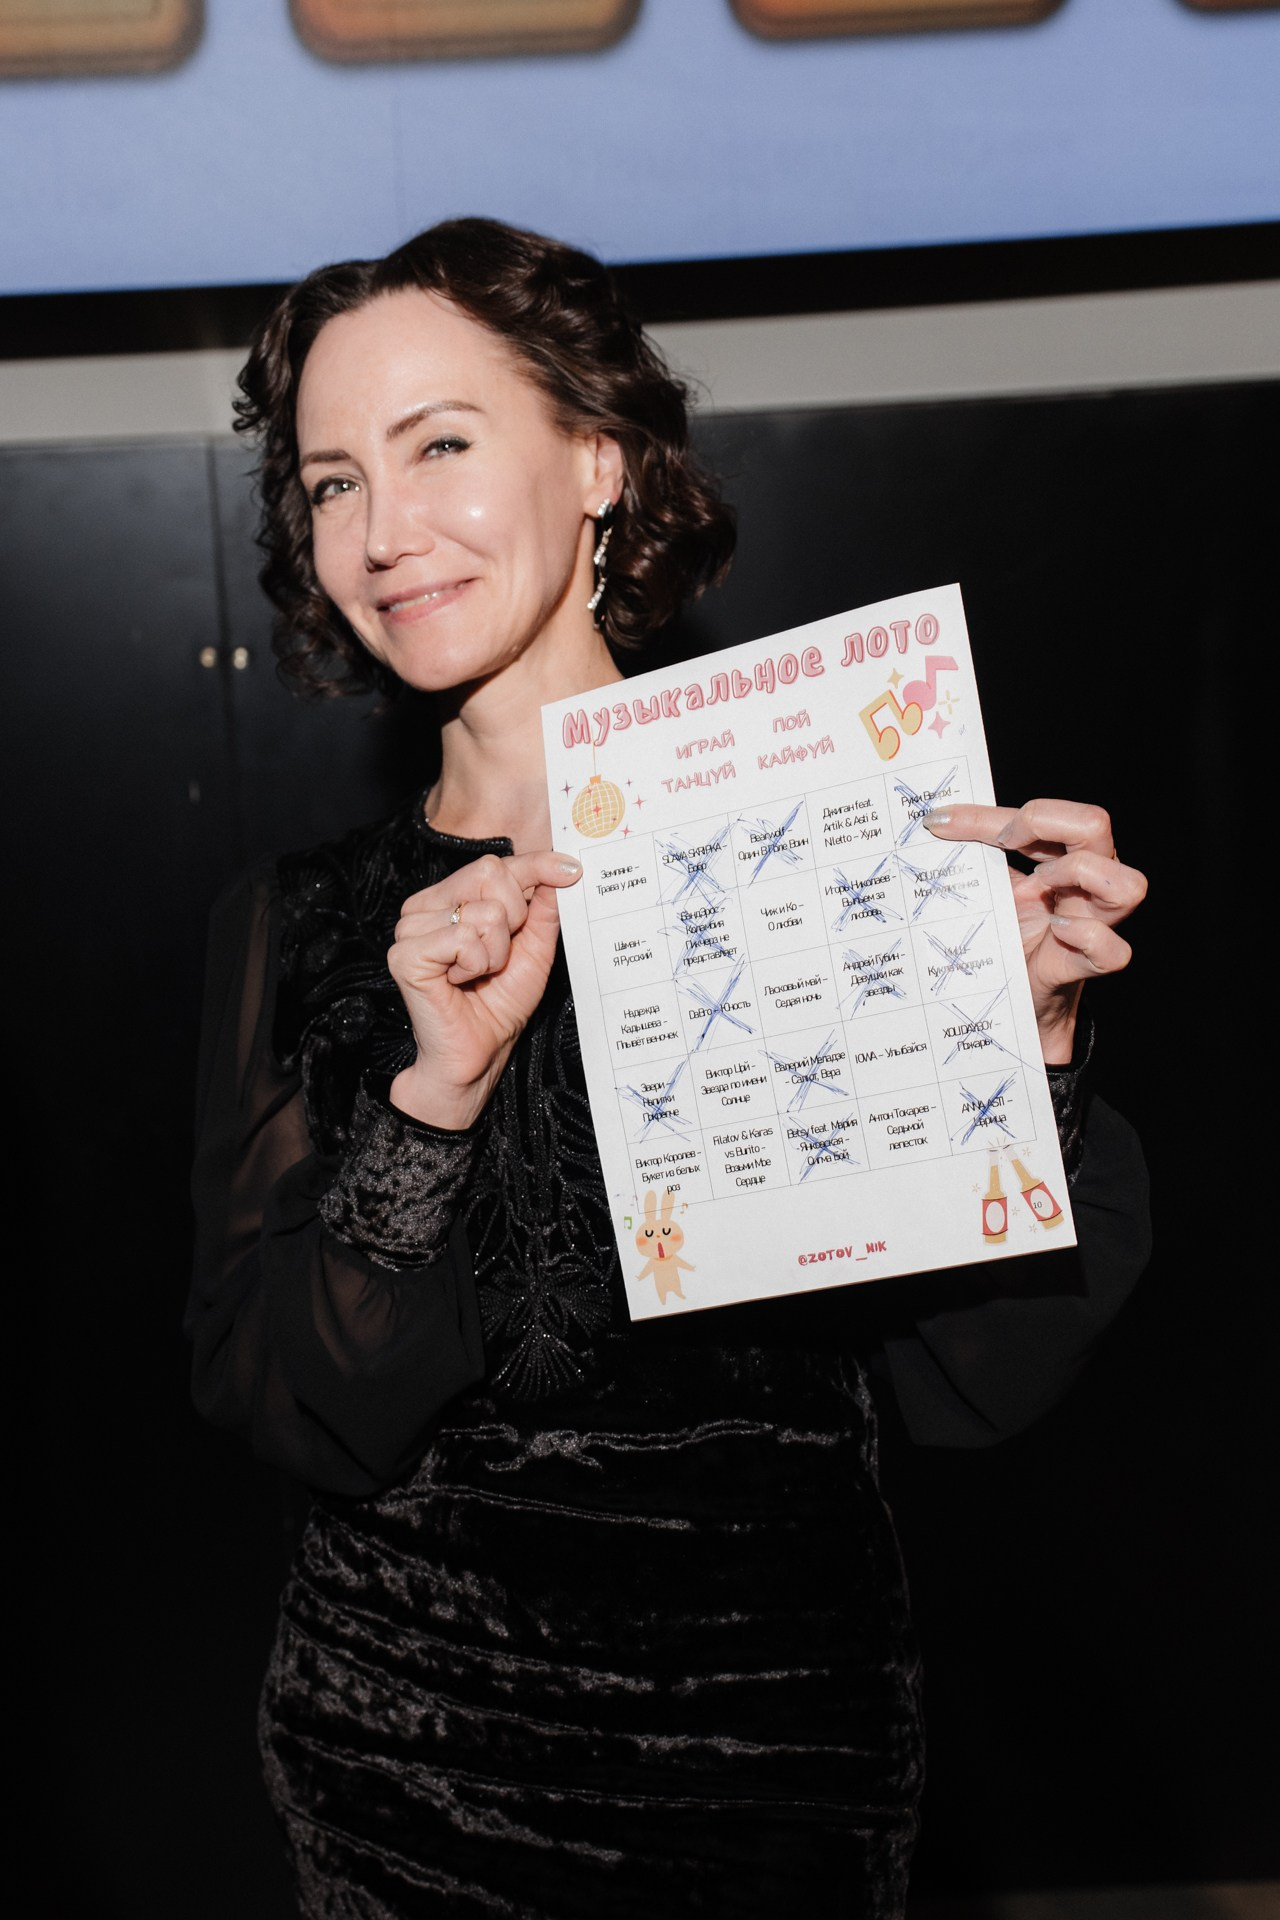 Музыкальное лото
ИГРАЙ ПОЙ
ТАНЦУЙ КАЙФУЙ
Земляне –
Трава у дома
SLAVA SKRIPKA –
Бобр
Bearwolf –
Один В Поле Воин
Джиган feat.
Artik & Asti &
NLetto – Худи
Руки Вверх! –
Шаман –
Я Русский
Бандэрос –
Коламбия
Пикчера не
представляет
Чиж и Ко –
О любви
Игорь Николаев –
Выпьем за
любовь
XOLIDAYBOY –
Моя хулиганка
Надежда
Кадышева –
Плывёт веночек
Dabro – Юность
Ласковый май –
Седая ночь
Андрей Губин –
Девушки как
звезды
Кукла колдуна
Звери –
Напитки
Покрепче
Виктор Цой –
Звезда по имени
Солнце
Валерий Меладзе
– Салют, Вера
IOWA – Улыбайся
XOLIDAYBOY –
Пожары
Виктор Королев –
Букет из белых
роз
Filatov & Karas
vs Burito –
Возьми Мое
Сердце
Betsy feat. Мария
Янковская –
Сигма Бой
Антон Токарев –
Седьмой
лепесток
ANNA ASTI –
Царица
10
@ZOTOV_NIK